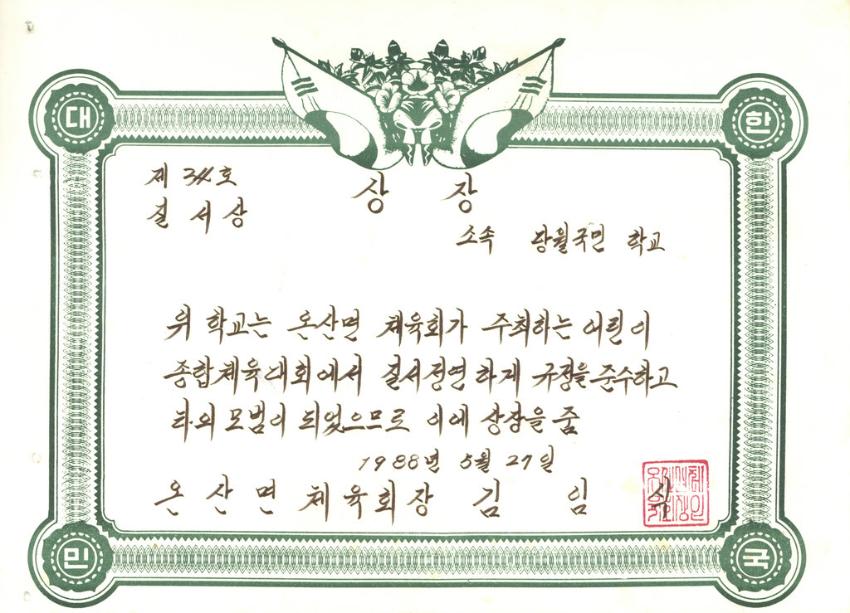 대 한
제 호
질서상
상 장
소속 당월국민 학교
위 학교는 온산면 체육회가 주최하는 어린이
종합체육대회에서 질서정연하게 규정을 준수하고
타의 모범이 되었으므로 이에 상장을 줌
1988년 5월 27일
온산면 체육회장 김 임
민 국